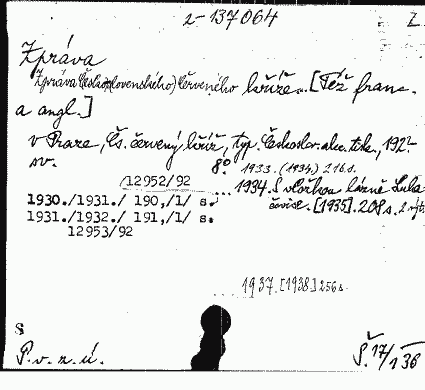 2-137064 Z
Zpráva
Zpráva Česko(slovenského) Červeného kříže... [Též franc.
a angl.]
v Praze, Čs. červený kříž, typ. Českoslov. akc. tisk., 192?
sv. 8°. 1933. (1934) 216 s.
12952/92 ... 1934. S vložkou lázně
1930./1931./ 190,/1/ s. [1935]. 208 s.
1931./1932./ 191,/1/ s.
12953/92
1937. [1938] 256 s.
S
P. v. z. ú. Š. 17/136